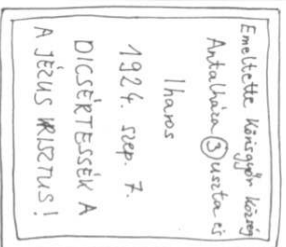 Emeltette Kőrisgyőr község
Antalháza ③ uszta és
Iharos
1924. szep. 7.
DICSÉRTESSÉK A
A JÉZUS KRISZTUS!